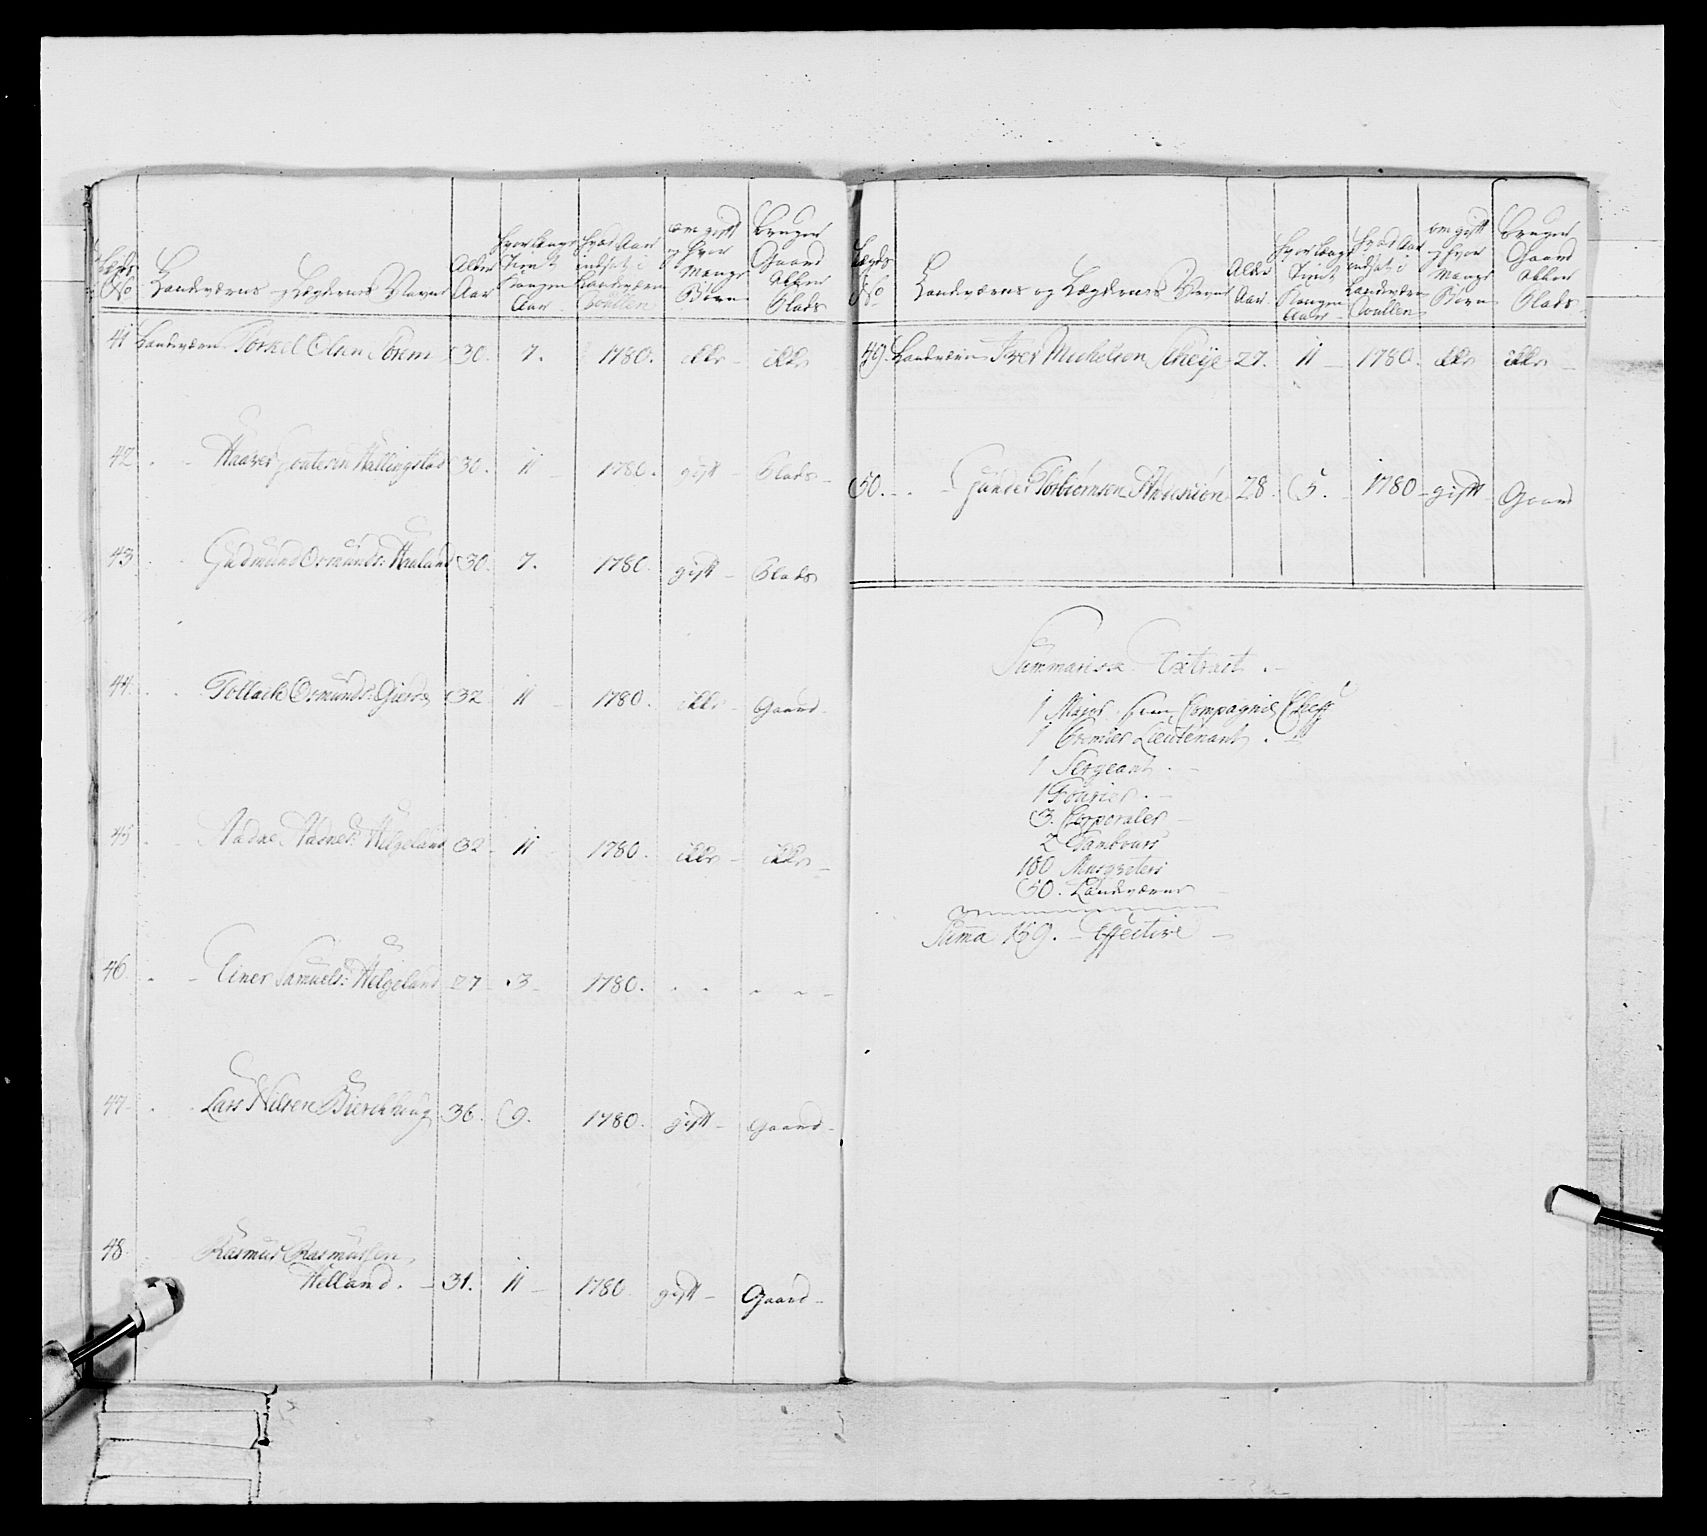 Lægds No
Landværns og Lægdernes Navne
Alder Aar
hvor længe Tient Kongen Aar
hvad Aar indsat i Landværn Roullen
om gift og hvor Mange Børn
Bruger Gaard eller Plads
41 Landværn Torkel Olsen Sørem 30. 7. 1780. ikke ikke
42 Haaver Hallingstad 30. 11 1780. gift Plads
43 Gudmund Ormunds: Haaland 30. 7. 1780. gift Plads
44 Tollack Ormunds: Gierde 32 11 1780. ikke Gaard
45 Aadne Aadnes: Helgeland 32 11 1780. ikke ikke
46 Einer Samuels: Helgeland 27 3 1780.
47 Lars Nilsen Bierchhoug 36. 9. 1780. gift Gaard
48 Rasmus Rasmussen
Helland. 31. 11 1780. gift Gaard
Lægds No
Landværns og Lægdernes Navne
Alder Aar
hvor længe Tient Kongen Aar
hvad Aar indsat i Landværn Roullen
om gift og hvor Mange Børn
Bruger Gaard eller Plads
49. Landværn Iver Michelsen Scheije 27. 11 1780. ikke ikke
50. Gunder Torbiørnsen 28. 5. 1780 gift Gaard
Summarisk Extract.
1 Major som Compagnie Cheff
1 Premier Lieutenant.
1 Sergeant.
1 Fourier.
3. Corporaler
2 Tambours
100 Musqveterer
50. Landværn
Suma 159. Effective